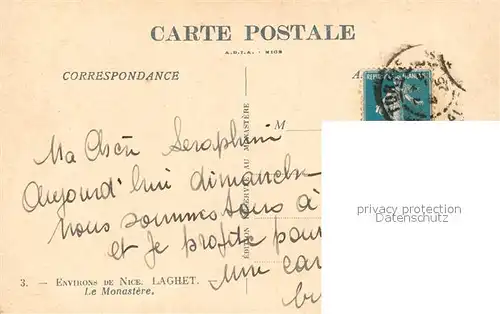 CARTE POSTALE
A.D.I.A. - NICE
CORRESPONDANCE
A
M
ÉDITION RÉSERVÉE AU MONASTÈRE
Ma Seraphin
Aujourd'hui dimanche
nous sommes tous à
et je profite pour
une
3. — ENVIRONS DE NICE. LAGHET. —
Le Monastère.
privacy protection
Datenschutz